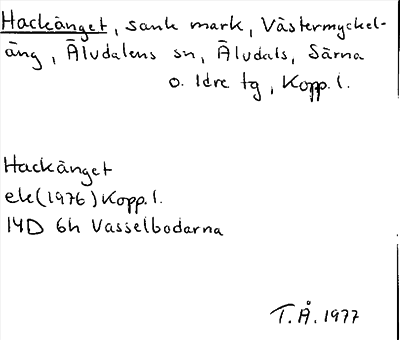 Hackänget, sank mark, Västermyckel-
äng, Älvdalens sn, Älvdals, Särna
o. Idre tg, Kopp. l.
Hackänget
ek (1976) Kopp. l.
14D 6h Vasselbodarna
T.Å. 1977